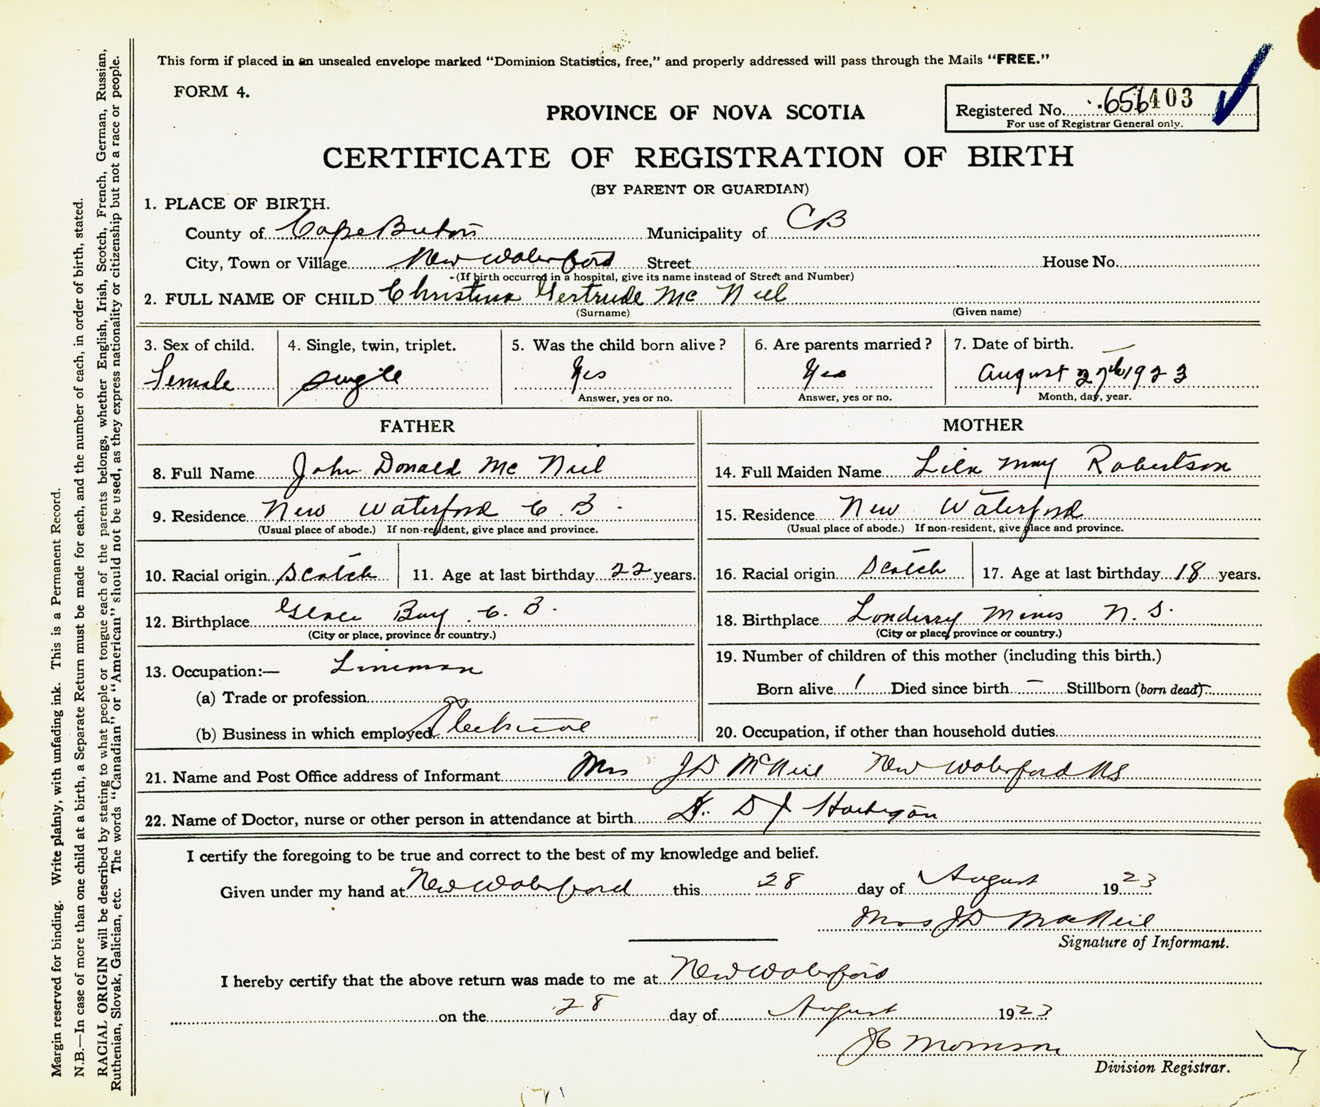 This form if placed in an unsealed envelope marked "Dominion Statistics, free," and properly addressed will pass through the Mails "FREE."
FORM 4.
PROVINCE OF NOVA SCOTIA
Registered No. 656403
For use of Registrar General only.
CERTIFICATE OF REGISTRATION OF BIRTH
(BY PARENT OR GUARDIAN)
1. PLACE OF BIRTH.
County of Cape Breton Municipality of CB
City, Town or Village New Waterford Street House No.
(If birth occurred in a hospital, give its name instead of Street and Number)
2. FULL NAME OF CHILD Christina Gertrude Mc Neil
(Surname) (Given name)
3. Sex of child. 4. Single, twin, triplet. 5. Was the child born alive? 6. Are parents married? 7. Date of birth.
Female single Yes Yes August 27th 1923
Answer, yes or no. Answer, yes or no. Month, day, year.
FATHER MOTHER
8. Full Name John Donald Mc Neil 14. Full Maiden Name Lila May Robertson
9. Residence New Waterford C. B. 15. Residence New Waterford
(Usual place of abode.) If non-resident, give place and province. (Usual place of abode.) If non-resident, give place and province.
10. Racial origin Scotch 11. Age at last birthday 22 years. 16. Racial origin Scotch 17. Age at last birthday 18 years.
12. Birthplace Glace Bay C. B. 18. Birthplace Londerry Mines N. S.
(City or place, province or country.) (City or place, province or country.)
13. Occupation:— Lineman 19. Number of children of this mother (including this birth.)
(a) Trade or profession Born alive 1 Died since birth — Stillborn (born dead) -
(b) Business in which employed Electrical 20. Occupation, if other than household duties
21. Name and Post Office address of Informant Mrs JD McNeil New Waterford NS
22. Name of Doctor, nurse or other person in attendance at birth Dr. D J Hartigan
I certify the foregoing to be true and correct to the best of my knowledge and belief.
Given under my hand at New Waterford this 28 day of August 1923
Mrs JD MacNeil
Signature of Informant.
I hereby certify that the above return was made to me at New Waterford
on the 28 day of August 1923
Morrison
Division Registrar.
Margin reserved for binding. Write plainly, with unfading ink. This is a Permanent Record.
N.B.—In case of more than one child at a birth, a Separate Return must be made for each, and the number of each, in order of birth, stated.
RACIAL ORIGIN will be described by stating to what people or tongue each of the parents belongs, whether English, Irish, Scotch, French, German, Russian,
Ruthenian, Slovak, Galician, etc. The words "Canadian" or "American" should not be used, as they express nationality or citizenship but not a race or people.